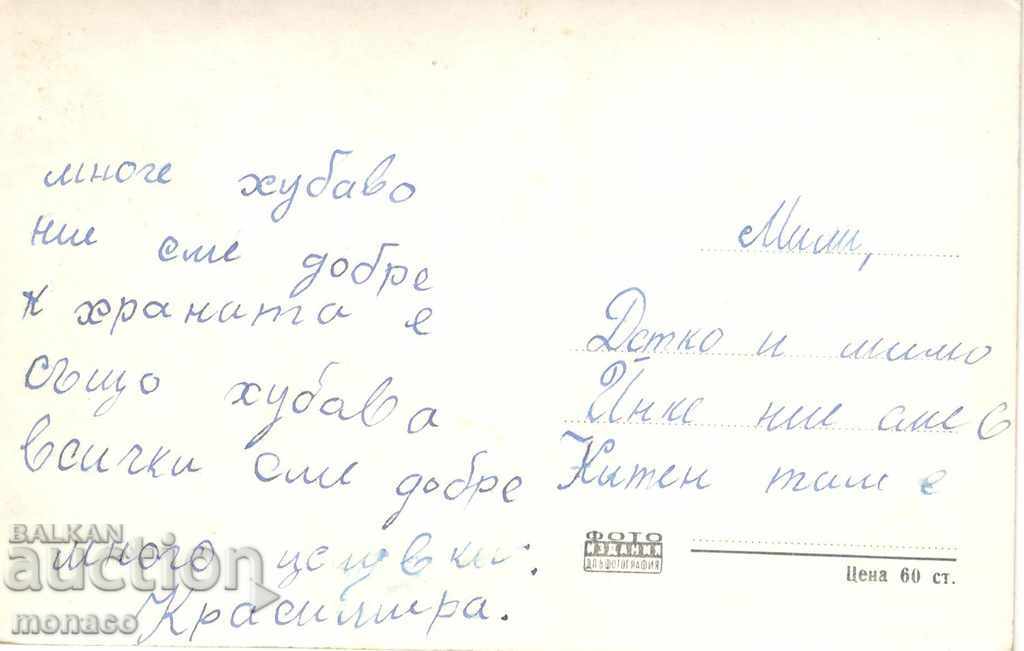 Мили,
Детко и мимо
Инке ние сме в
Китен там е
много хубаво
ние сме добре
храната е
също хубава
всички сме добре
много целувки:
Красимира.
ФОТО
ИЗДАНИЯ
ДП БЪЛГ. ФОТОГРАФИЯ
Цена 60 ст.
BALKAN
auction
monaco